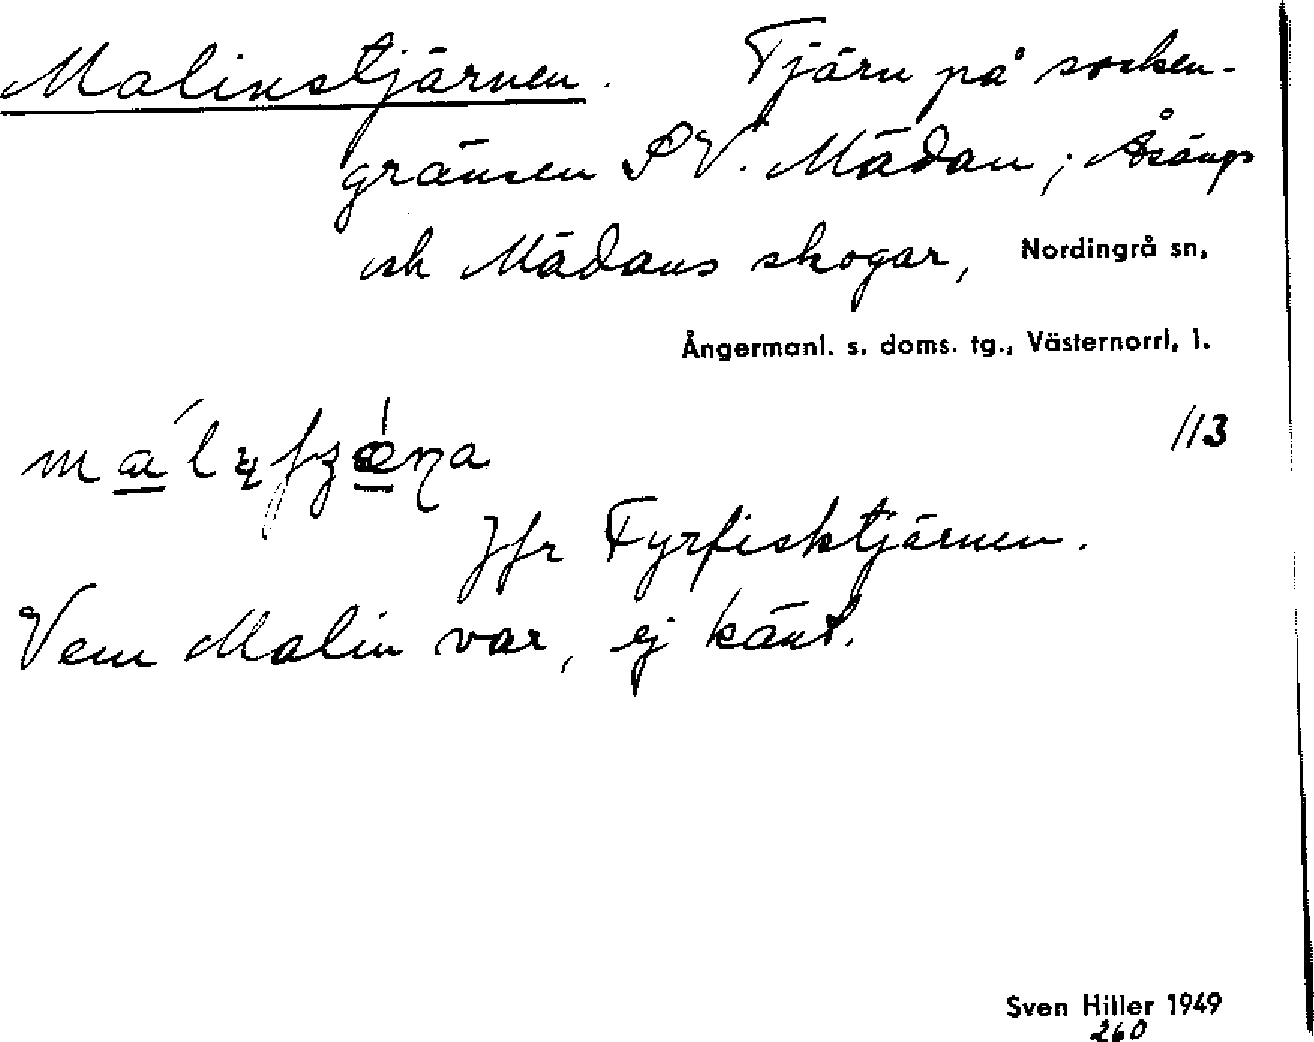 Malinstjärnen. Tjärn på socken-
gränsen SV. Mädan; Åsängs
och Mädans skogar, Nordingrå sn,
Ångermanl. s. doms. tg., Västernorrl. l.
113
Jfr Fyrfisktjärnen.
Vem Malin var, ej känt.
Sven Hiller 1949
260